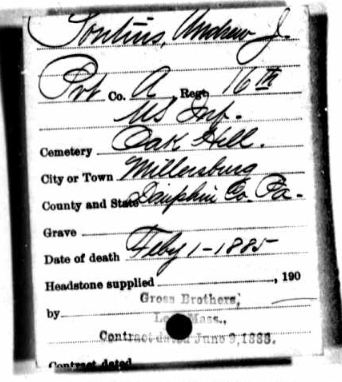 Pontius, Andrew J.
Pvt Co. A Regt. 16th
US Inf.
Cemetery Oak Hill.
City or Town Millersburg
County and State Dauphin Co. Pa.
Grave
Date of death Feby 1-1885
Headstone supplied , 190
Gross Brothers,
by Mass.,
Contract dated June 9, 1888.
Contract dated